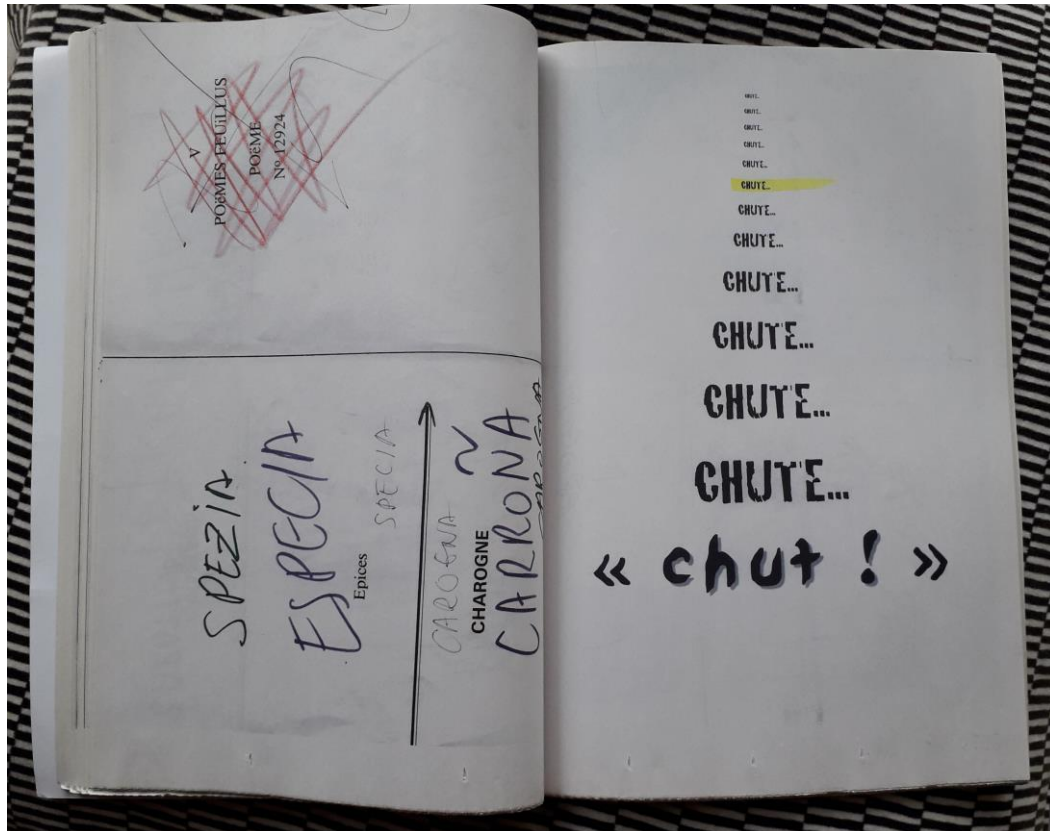 V
POëMES FEUiLLUS
POëME
Nº 12924
SPEZiA
ESPECIA
Epices
SPECIA
CAROGNA
CHAROGNE
CARROÑA
CHUTE...
CHUTE...
CHUTE...
CHUTE...
CHUTE...
CHUTE...
CHUTE...
CHUTE...
CHUTE...
CHUTE...
CHUTE...
CHUTE...
« chut ! »